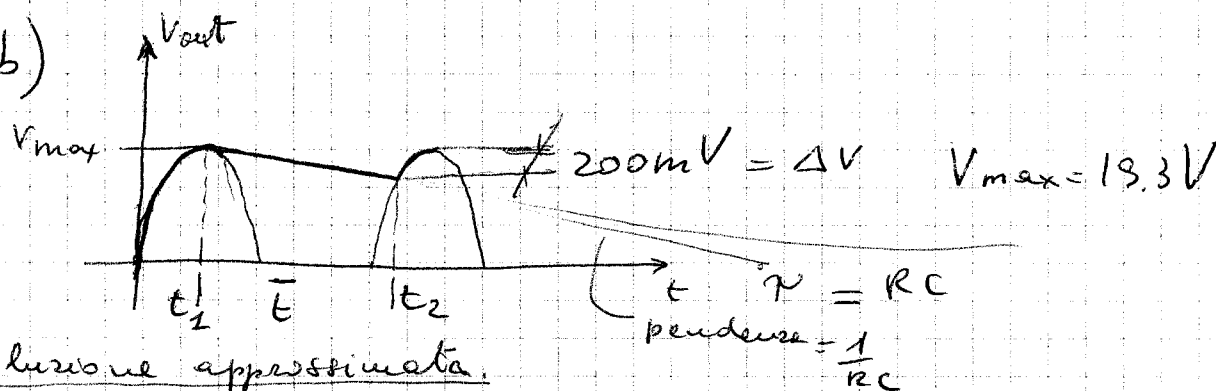 b)
Vout
Vmax
200mV = ΔV
Vmax = 19.3V
t1
t̄
t2
t
τ = RC
pendenza = 1/RC
luzione approssimata.